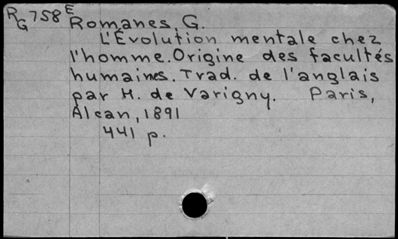 RG758E Romanes, G.
L'Évolution mentale chez
l'homme. Origine des facultés
humaines. Trad. de l'anglais
par H. de Varigny. Paris,
Alcan, 1891
441 p.